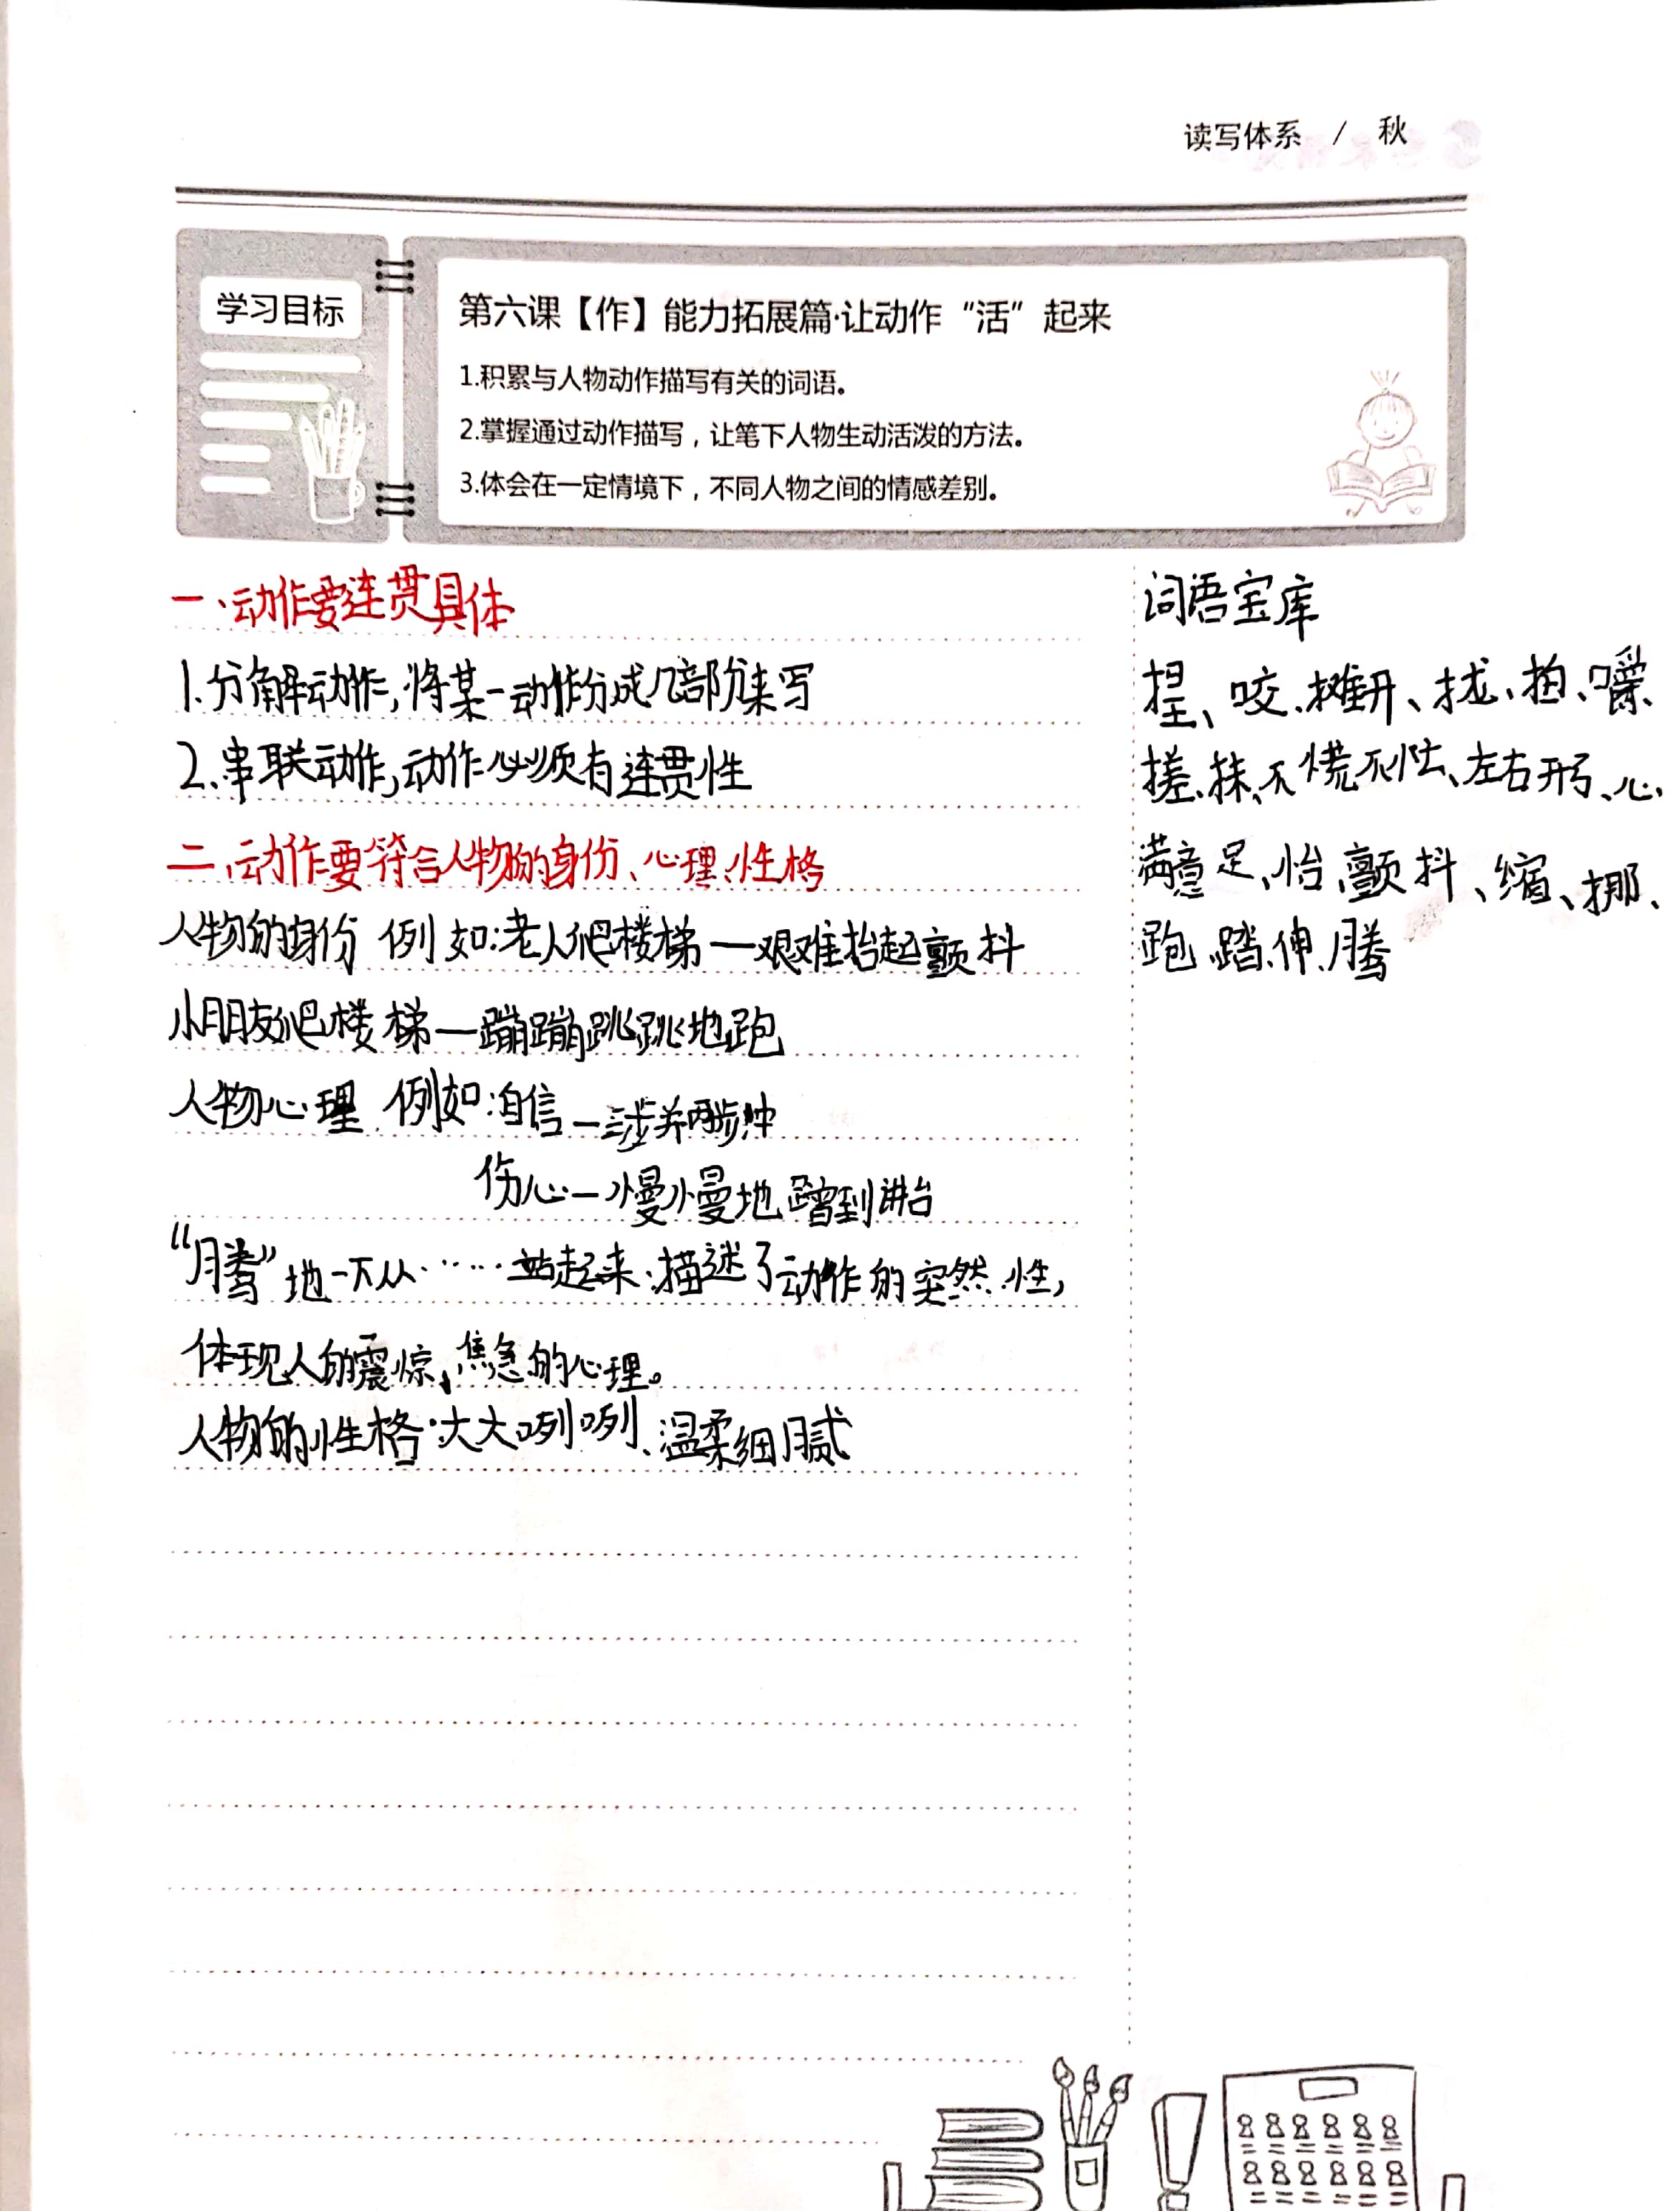 读写体系 / 秋
学习目标
第六课【作】能力拓展篇·让动作“活”起来
1.积累与人物动作描写有关的词语。
2.掌握通过动作描写，让笔下人物生动活泼的方法。
3.体会在一定情境下，不同人物之间的情感差别。
一、动作要连贯具体
1.分解动作,将某一动作分成几部分来写
2.串联动作,动作必须有连贯性
二、动作要符合人物的身份、心理、性格
人物的身份 例如:老人爬楼梯—艰难抬起颤抖
小朋友爬楼梯—蹦蹦跳跳地跑
人物心理 例如:自信—三步并两步冲
伤心—慢慢地踏到讲台
“腾”地一下从……站起来:描述了动作的突然性,
体现人的震惊、焦急的心理。
人物的性格:大大咧咧、温柔细腻
词语宝库
捏、咬、摊开、拢、拍、嚼、
搓、抹、不慌不忙、左右开弓、心
满意足、抬、颤抖、缩、挪、
跑、踏、伸、腾